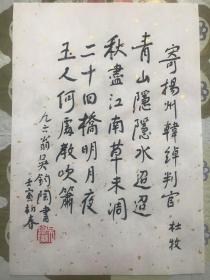 寄揚州韓綽判官 杜牧
青山隱隱水迢迢
秋盡江南草未凋
二十四橋明月夜
玉人何處教吹簫
九六翁吳鈞陶書
壬寅初春